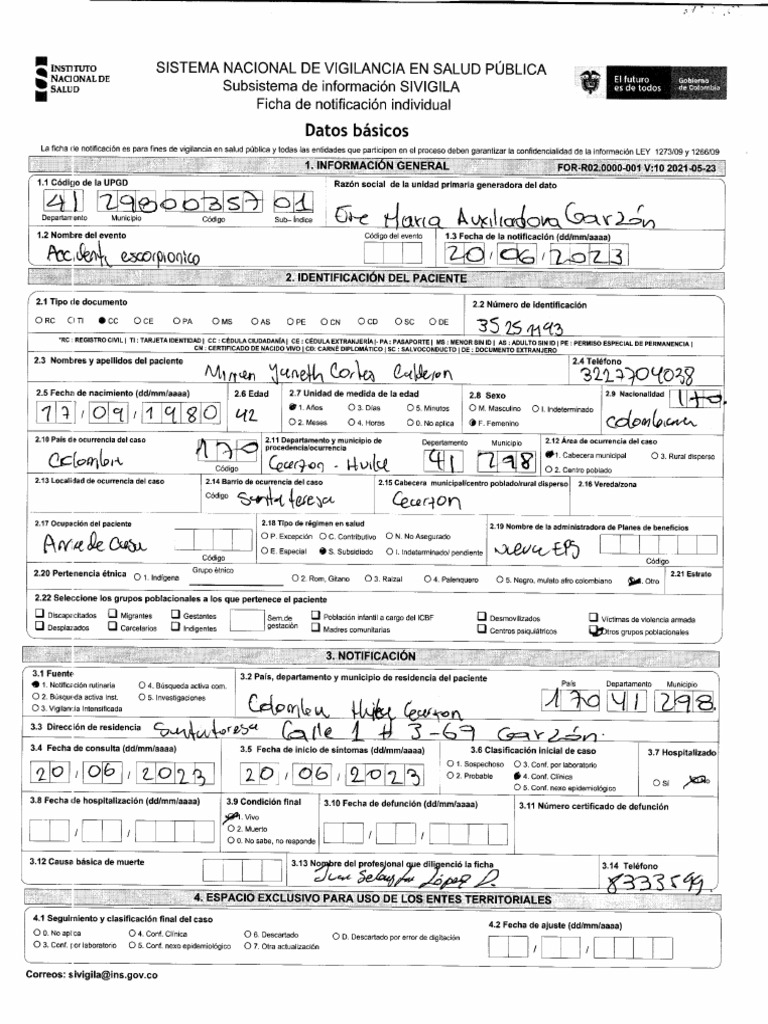 INSTITUTO
NACIONAL DE
SALUD
SISTEMA NACIONAL DE VIGILANCIA EN SALUD PÚBLICA
Subsistema de información SIVIGILA
Ficha de notificación individual
El futuro
es de todos
Gobierno
de Colombia
Datos básicos
La ficha de notificación es para fines de vigilancia en salud pública y todas las entidades que participen en el proceso deben garantizar la confidencialidad de la información LEY 1273/09 y 1266/09
1. INFORMACIÓN GENERAL FOR-R02.0000-001 V:10 2021-05-23
1.1 Código de la UPGD Razón social de la unidad primaria generadora del dato
41 298 00357 01 Ese Maria Auxiliadora Garzón
Departamento Municipio Código Sub- índice
1.2 Nombre del evento Código del evento 1.3 Fecha de la notificación (dd/mm/aaaa)
Accidente escorpionico 20/06/2023
2. IDENTIFICACIÓN DEL PACIENTE
2.1 Tipo de documento 2.2 Número de identificación
RC TI CC CE PA MS AS PE CN CD SC DE 35251193
*RC : REGISTRO CIVIL | TI : TARJETA IDENTIDAD | CC : CÉDULA CIUDADANÍA | CE : CÉDULA EXTRANJERÍA |- PA : PASAPORTE | MS : MENOR SIN ID | AS : ADULTO SIN ID | PE : PERMISO ESPECIAL DE PERMANENCIA |
CN : CERTIFICADO DE NACIDO VIVO | CD: CARNÉ DIPLOMÁTICO | SC : SALVOCONDUCTO | DE : DOCUMENTO EXTRANJERO
2.3 Nombres y apellidos del paciente 2.4 Teléfono
Yaneth Cortes Calderon 3227704038
2.5 Fecha de nacimiento (dd/mm/aaaa) 2.6 Edad 2.7 Unidad de medida de la edad 2.8 Sexo 2.9 Nacionalidad 170
17/09/1980 42 1. Años 3. Días 5. Minutos M. Masculino I. Indeterminado
2. Meses 4. Horas 0. No aplica F. Femenino Colombiana
2.10 País de ocurrencia del caso 2.11 Departamento y municipio de procedencia/ocurrencia Departamento Municipio 2.12 Área de ocurrencia del caso
Colombia 170 Garzon - Huila 41 298 1. Cabecera municipal 3. Rural disperso
Código 2. Centro poblado
2.13 Localidad de ocurrencia del caso 2.14 Barrio de ocurrencia del caso 2.15 Cabecera municipal/centro poblado/rural disperso 2.16 Vereda/zona
Código Santa teresa Garzon
2.17 Ocupación del paciente 2.18 Tipo de régimen en salud 2.19 Nombre de la administradora de Planes de beneficios
P. Excepción C. Contributivo N. No Asegurado
Ama de Casa E. Especial S. Subsidiado I. Indeterminado/ pendiente Nueva EPS
Código Código
2.20 Pertenencia étnica 1. Indígena Grupo étnico 2. Rom, Gitano 3. Raizal 4. Palenquero 5. Negro, mulato afro colombiano 6. Otro 2.21 Estrato
2.22 Seleccione los grupos poblacionales a los que pertenece el paciente
Discapacitados Migrantes Gestantes Sem.de gestación Población infantil a cargo del ICBF Desmovilizados Víctimas de violencia armada
Desplazados Carcelarios Indigentes Madres comunitarias Centros psiquiátricos Otros grupos poblacionales
3. NOTIFICACIÓN
3.1 Fuente 3.2 País, departamento y municipio de residencia del paciente País Departamento Municipio
1. Notificación rutinaria 4. Búsqueda activa com.
2. Búsqueda activa Inst. 5. Investigaciones Colombia Huila Garzon 170 41 298
3. Vigilancia Intensificada
3.3 Dirección de residencia Santa teresa Calle 1 # 3-69 Garzón.
3.4 Fecha de consulta (dd/mm/aaaa) 3.5 Fecha de inicio de síntomas (dd/mm/aaaa) 3.6 Clasificación inicial de caso 3.7 Hospitalizado
20/06/2023 20/06/2023 1. Sospechoso 3. Conf. por laboratorio
2. Probable 4. Conf. Clínica Sí No
5. Conf. nexo epidemiológico
3.8 Fecha de hospitalización (dd/mm/aaaa) 3.9 Condición final 3.10 Fecha de defunción (dd/mm/aaaa) 3.11 Número certificado de defunción
1. Vivo
2. Muerto
0. No sabe, no responde
3.12 Causa básica de muerte 3.13 Nombre del profesional que diligenció la ficha 3.14 Teléfono
López 8333599
4. ESPACIO EXCLUSIVO PARA USO DE LOS ENTES TERRITORIALES
4.1 Seguimiento y clasificación final del caso 4.2 Fecha de ajuste (dd/mm/aaaa)
0. No aplica 4. Conf. Clínica 6. Descartado D. Descartado por error de digitación
3. Conf. por laboratorio 5. Conf. nexo epidemiológico 7. Otra actualización
Correos: sivigila@ins.gov.co